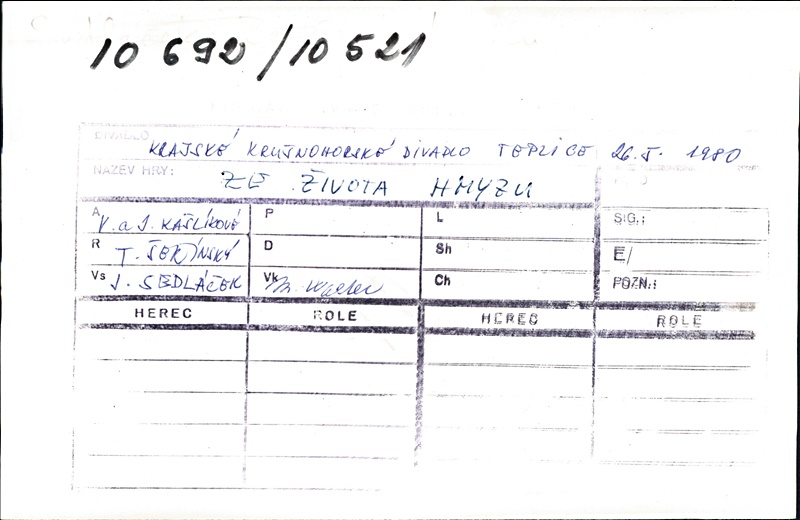 10 692/10 521
DIVADLO
KRAJSKÉ KRUŠNOHORSKÉ DIVADLO TEPLICE 26. I. 1980
NÁZEV HRY: ZE ŽIVOTA HMYZU
A V. a J. KAŠLÍKOVÉ P L SIG.:
R T. D Sh E/
Vs J. SEDLÁČEK Vk Ch POZN.:
HEREC ROLE HEREC ROLE